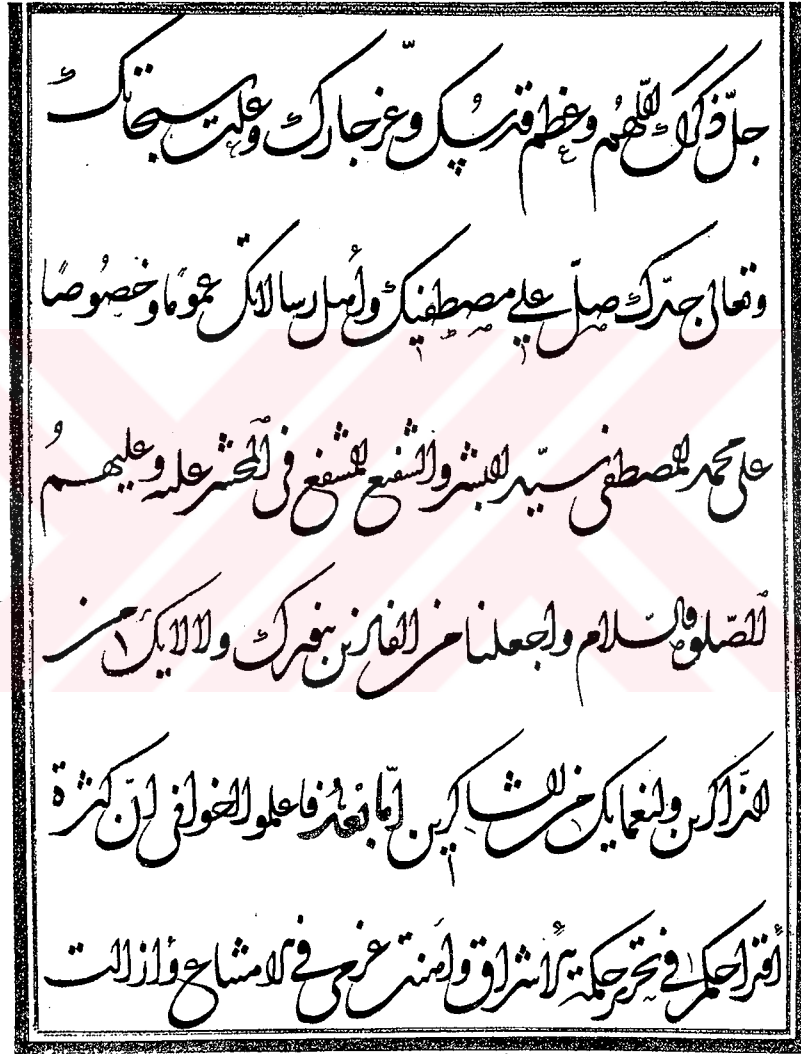 جل ذكرك اللهم وعظم قدسك وعز جارك وعلت سبحاتك
وتعالى جدك صل على مصطفيك وأهل رسالاتك عموما وخصوصا
على محمد المصطفى سيد البشر والشفيع المشفع في المحشر عليه وعليهم
الصلوة والسلام واجعلنا من الفائزين بنورك ولآلائك من
الذاكرين ولنعمائك من الشاكرين أما بعد فاعلموا إخواني ان كثرة
اقتراحكم في تحرير حكمة الاشراق وأهنت عزمي في الامتناع وأزالت